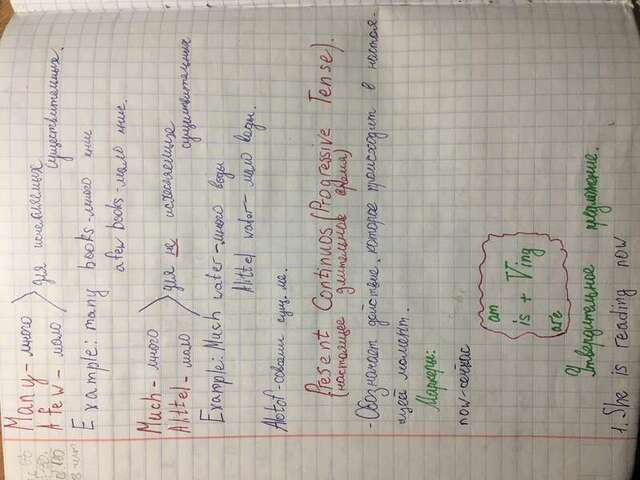 Many - много
для исчесляемых
A few - мало
существительных.
Example: many books - много книг
a few books - мало книг.
Much - много
для не исчесляемых
Alittel - мало
существительных
Example: Much water - много воды
Alittel water - мало воды.
Alotof - совсеми сущ.
Present Continuos (Progressive Tense).
(настоящее длительное время)
- Обозначает действие, которое происходит в настоя-
щей момент.
Маркеры:
now - сейчас
am
is + Ving
are
Утвердительное предложение.
1. She is reading now